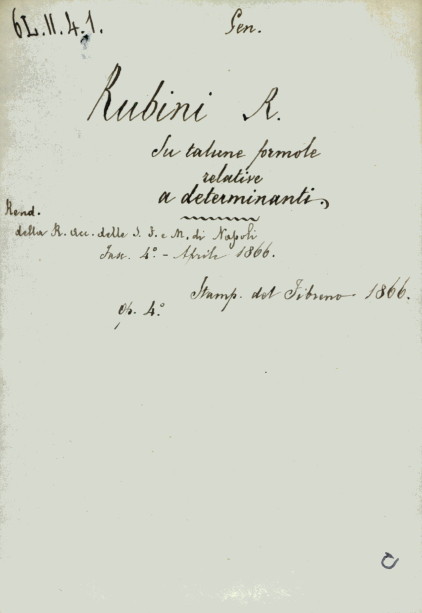 6L.II.4.1.
Gen.
Rubini R.
Su talune formole
relative
a determinanti,
Rend.
della R. Acc. delle S. F. e M. di Napoli
Fasc. 4.° - Aprile 1866.
Stamp. del Fibreno 1866.
Op. 4.°